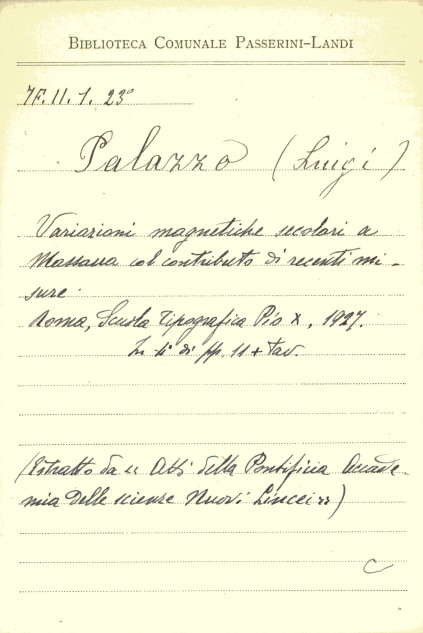 BIBLIOTECA COMUNALE PASSERINI-LANDI
7F. II. 1. 23°
Palazzo (Luigi)
Variazioni magnetiche secolari a
Massaua col contributo di recenti mi-
sure.
Roma, Scuola Tipografica Pio X, 1927.
In 4° di pp. 11 + tav.
(Estratto da << Atti della Pontificia Accade-
mia delle scienze Nuovi Lincei >>)
C